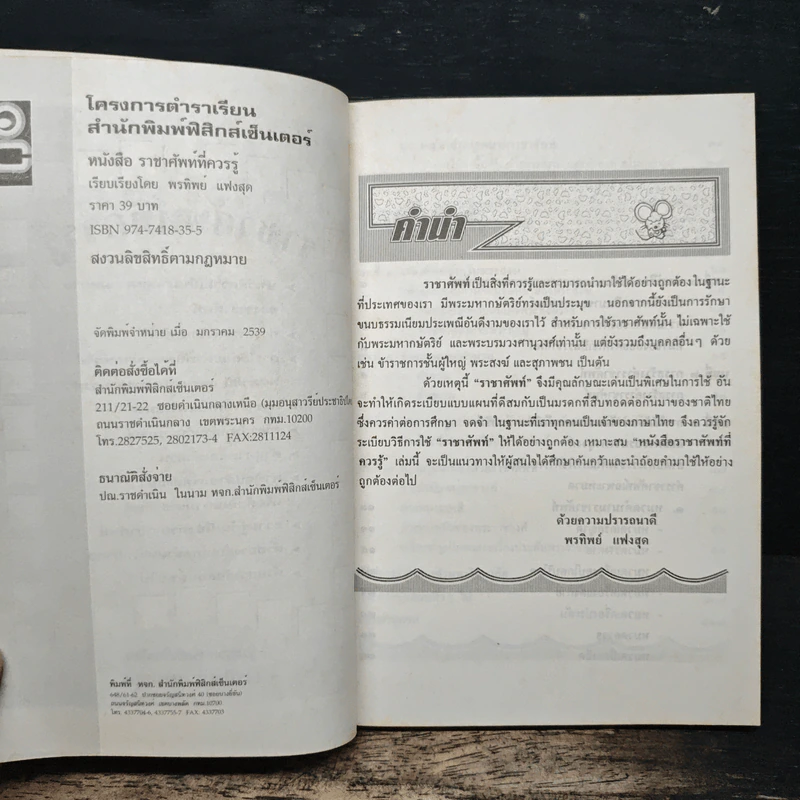 โครงการตำราเรียน
สำนักพิมพ์ฟิสิกส์เซ็นเตอร์
หนังสือ ราชาศัพท์ที่ควรรู้
เรียบเรียงโดย พรทิพย์ แฟงสุด
ราคา 39 บาท
ISBN 974-7418-35-5
สงวนลิขสิทธิ์ตามกฎหมาย
จัดพิมพ์จำหน่าย เมื่อ มกราคม 2539
ติดต่อสั่งซื้อได้ที่
สำนักพิมพ์ฟิสิกส์เซ็นเตอร์
211/21-22 ซอยดำเนินกลางเหนือ (มุมอนุสาวรีย์ประชาธิปไตย
ถนนราชดำเนินกลาง เขตพระนคร กทม.10200
โทร.2827525, 2802173-4 FAX:2811124
ธนาณัติสั่งจ่าย
ปณ.ราชดำเนิน ในนาม หจก.สำนักพิมพ์ฟิสิกส์เซ็นเตอร์
พิมพ์ที่ หจก. สำนักพิมพ์ฟิสิกส์เซ็นเตอร์
648/61-62 ปากซอยจรัญสนิทวงศ์ 40 (ซอยบางยี่ขัน)
ถนนจรัญสนิทวงศ์ เขตบางพลัด กทม.10700
โทร. 4337704-6, 4337755-7 FAX. 4337703
คำนำ
ราชาศัพท์ เป็นสิ่งที่ควรรู้และสามารถนำมาใช้ได้อย่างถูกต้อง ในฐานะ
ที่ประเทศของเรา มีพระมหากษัตริย์ทรงเป็นประมุข นอกจากนี้ยังเป็นการรักษา
ขนบธรรมเนียมประเพณีอันดีงามของเราไว้ สำหรับการใช้ราชาศัพท์นั้น ไม่เฉพาะใช้
กับพระมหากษัตริย์ และพระบรมวงศานุวงศ์เท่านั้น แต่ยังรวมถึงบุคคลอื่นๆ ด้วย
เช่น ข้าราชการชั้นผู้ใหญ่ พระสงฆ์ และสุภาพชน เป็นต้น
ด้วยเหตุนี้ "ราชาศัพท์" จึงมีคุณลักษณะเด่นเป็นพิเศษในการใช้ อัน
จะทำให้เกิดระเบียบแบบแผนที่ดีสมกับเป็นมรดกที่สืบทอดต่อกันมาของชาติไทย
ซึ่งควรค่าต่อการศึกษา จดจำ ในฐานะที่เราทุกคนเป็นเจ้าของภาษาไทย จึงควรรู้จัก
ระเบียบวิธีการใช้ "ราชาศัพท์" ให้ได้อย่างถูกต้อง เหมาะสม "หนังสือราชาศัพท์ที่
ควรรู้" เล่มนี้ จะเป็นแนวทางให้ผู้สนใจได้ศึกษาค้นคว้าและนำถ้อยคำมาใช้ให้อย่าง
ถูกต้องต่อไป
ด้วยความปรารถนาดี
พรทิพย์ แฟงสุด